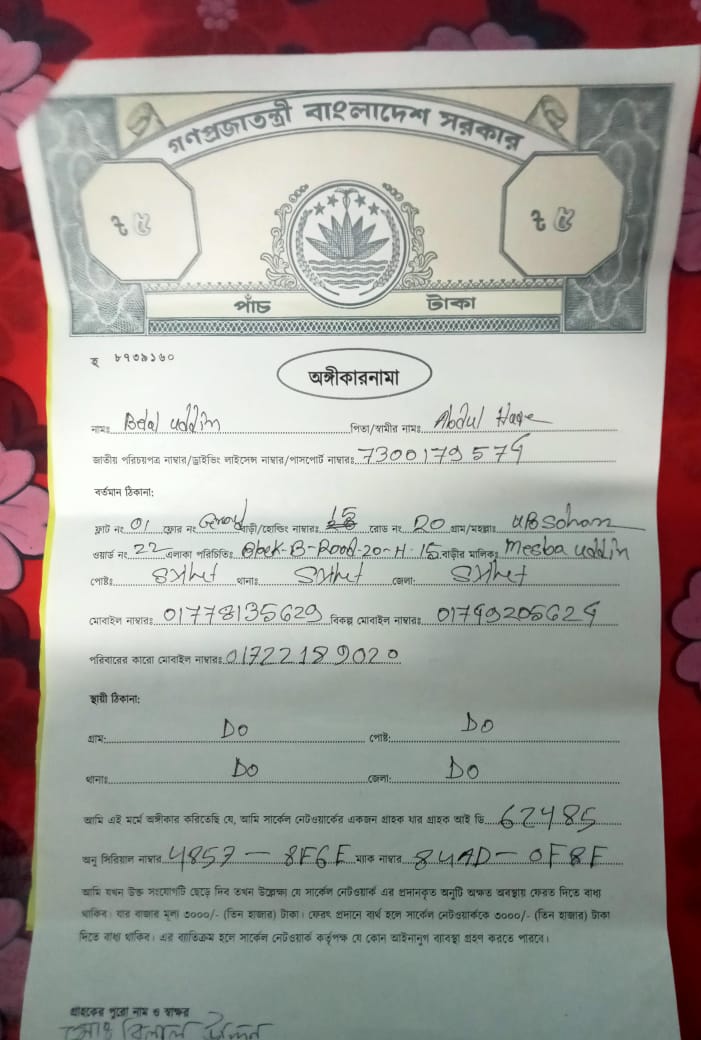 গণপ্রজাতন্ত্রী বাংলাদেশ সরকার
৳ ৫ ৳ ৫
পাঁচ টাকা
হ ৮৭৩৯১৬০
অঙ্গীকারনামা
নামঃ Belal uddin পিতা/স্বামীর নামঃ Abdul Haqe
জাতীয় পরিচয়পত্র নাম্বার/ড্রাইভিং লাইসেন্স নাম্বার/পাসপোর্ট নাম্বারঃ 7300179574
বর্তমান ঠিকানা:
ফ্লাট নং 01 ফ্লোর নং বাড়ী/হোল্ডিং নাম্বারঃ 15 রোড নং 20 গ্রাম/মহল্লাঃ
ওয়ার্ড নং 22 এলাকা পরিচিতিঃ Blook-B-Road-20-H-15 বাড়ীর মালিকঃ Mesba uddin
পোষ্টঃ Sylhet থানাঃ Sylhet জেলা: Sylhet
মোবাইল নাম্বারঃ 01778135629 বিকল্প মোবাইল নাম্বারঃ 01749205624
পরিবারের কারো মোবাইল নাম্বারঃ 01722189020
স্থায়ী ঠিকানা:
গ্রাম: DO পোষ্ট: DO
থানাঃ DO জেলা: DO
আমি এই মর্মে অঙ্গীকার করিতেছি যে, আমি সার্কেল নেটওয়ার্কের একজন গ্রাহক যার গ্রাহক আই ডি 62485
অনু সিরিয়াল নাম্বার 4857 - 8F6F ম্যাক নাম্বার 84AD - 0F8F
আমি যখন উক্ত সংযোগটি ছেড়ে দিব তখন উল্লেক্ষ্য যে সার্কেল নেটওয়ার্ক এর প্রদানকৃত অনুটি অক্ষত অবস্থায় ফেরত দিতে বাধ্য
থাকিব। যার বাজার মূল্য ৩০০০/- (তিন হাজার) টাকা। ফেরৎ প্রদানে ব্যর্থ হলে সার্কেল নেটওয়ার্ককে ৩০০০/- (তিন হাজার) টাকা
দিতে বাধ্য থাকিব। এর ব্যতিক্রম হলে সার্কেল নেটওয়ার্ক কর্তৃপক্ষ যে কোন আইনানুগ ব্যাবস্থা গ্রহণ করতে পারবে।
গ্রাহকের পুরো নাম ও স্বাক্ষর
মোঃ বিলাল উদ্দিন